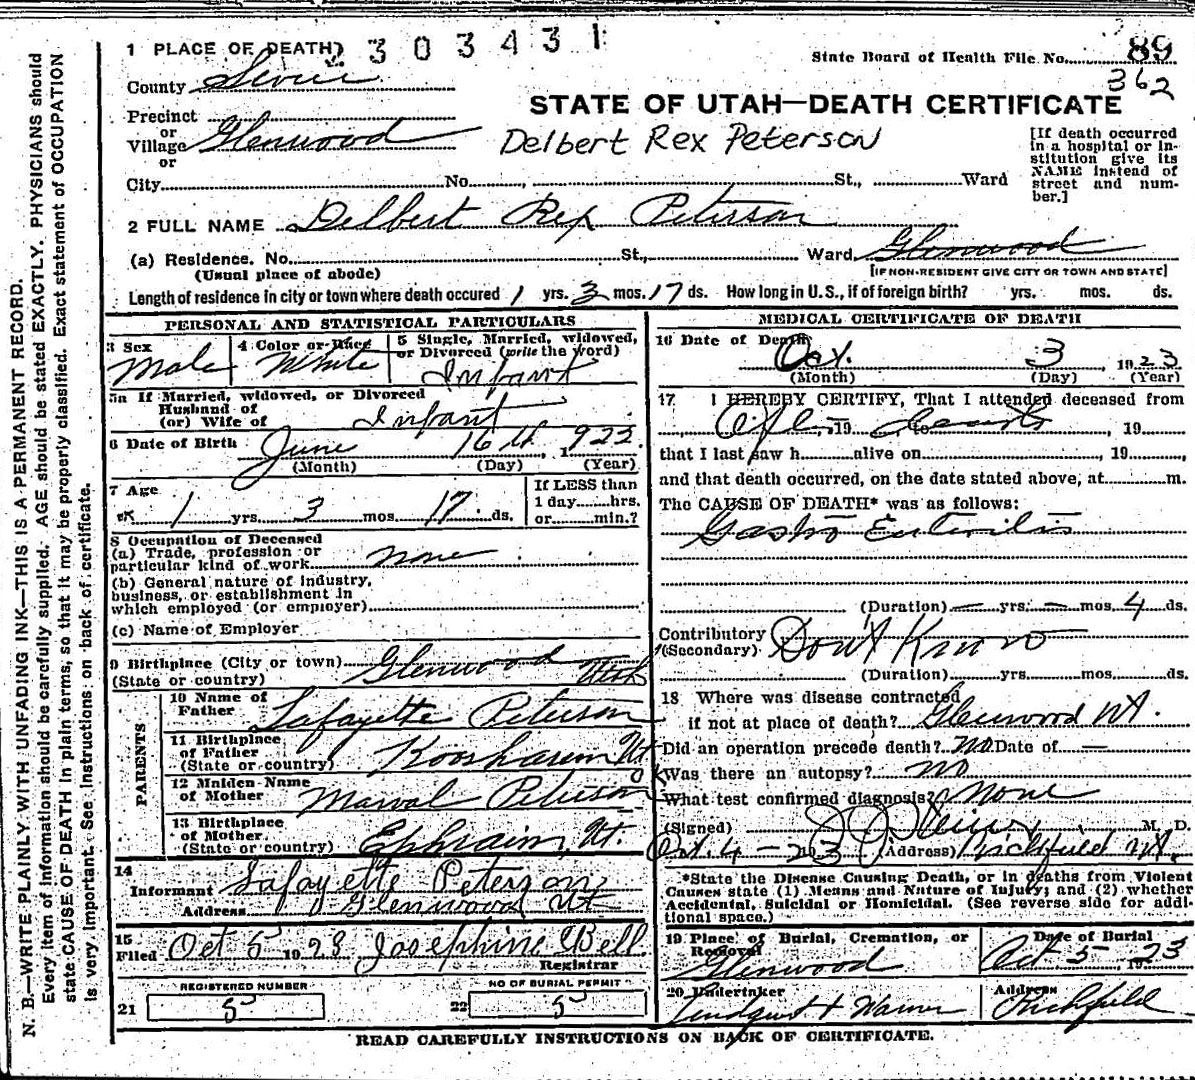 1 PLACE OF DEATH 2303431
State Board of Health File No. 89
County Sevier 362
STATE OF UTAH—DEATH CERTIFICATE
Precinct
or
Village Glenwood
or
Delbert Rex Peterson
[If death occurred in a hospital or in-
stitution give its
NAME instead of
street and num-
ber.]
City No. , St., Ward
2 FULL NAME Delbert Rex Peterson
(a) Residence. No. St., Ward Glenwood
(Usual place of abode) [IF NON-RESIDENT GIVE CITY OR TOWN AND STATE]
Length of residence in city or town where death occured 1 yrs. 3 mos. 17 ds. How long in U.S., if of foreign birth? yrs. mos. ds.
PERSONAL AND STATISTICAL PARTICULARS
3 Sex
Male
4 Color or Race
White
5 Single, Married, widowed,
or Divorced (write the word)
Infant
5a If Married, widowed, or Divorced
Husband of
(or) Wife of Infant
6 Date of Birth June 16th, 1922
(Month) (Day) (Year)
7 Age
1 yrs. 3 mos. 17 ds.
If LESS than
1 day hrs.
or min.?
8 Occupation of Deceased
(a) Trade, profession or
particular kind of work none
(b) General nature of industry,
business, or establishment in
which employed (or employer)
(c) Name of Employer
9 Birthplace (City or town) Glenwood
(State or country) Utah
PARENTS
10 Name of
Father Lafayette Peterson
11 Birthplace
of Father
(State or country) Koosharem Ut
12 Maiden Name
of Mother Marval Peterson
13 Birthplace
of Mother
(State or country) Ephraim, Ut.
14
Informant Lafayette Peterson
Address Glenwood Ut
15
Filed Oct 5 1923 Josephine Bell
Registrar
REGISTERED NUMBER
21 5
NO OF BURIAL PERMIT
22 5
MEDICAL CERTIFICATE OF DEATH
16 Date of Death
Oct. 3 1923
(Month) (Day) (Year)
17 I HEREBY CERTIFY, That I attended deceased from
, 19 , to , 19
that I last saw h alive on , 19 ,
and that death occurred, on the date stated above, at m.
The CAUSE OF DEATH* was as follows:
Gastro Enteritis
(Duration) — yrs. — mos. 4 ds.
Contributory Dont Know
(Secondary)
(Duration) yrs. mos. ds.
18 Where was disease contracted
if not at place of death? Glenwood Ut.
Did an operation precede death? No Date of —
Was there an autopsy? No
What test confirmed diagnosis? None
(Signed) M. D.
Oct. 4 - 23 (Address) Richfield Ut.
*State the Disease Causing Death, or in deaths from Violent
Causes state (1) Means and Nature of Injury; and (2) whether
Accidental, Suicidal or Homicidal. (See reverse side for addi-
tional space.)
19 Place of Burial, Cremation, or
Removal
Glenwood
Date of Burial
Oct 5 1923
20 Undertaker
Address
Richfield
READ CAREFULLY INSTRUCTIONS ON BACK OF CERTIFICATE.
N. B.—WRITE PLAINLY WITH UNFADING INK—THIS IS A PERMANENT RECORD.
Every item of information should be carefully supplied. AGE should be stated EXACTLY. PHYSICIANS should
state CAUSE OF DEATH in plain terms, so that it may be properly classified. Exact statement of OCCUPATION
is very important. See instructions on back of certificate.